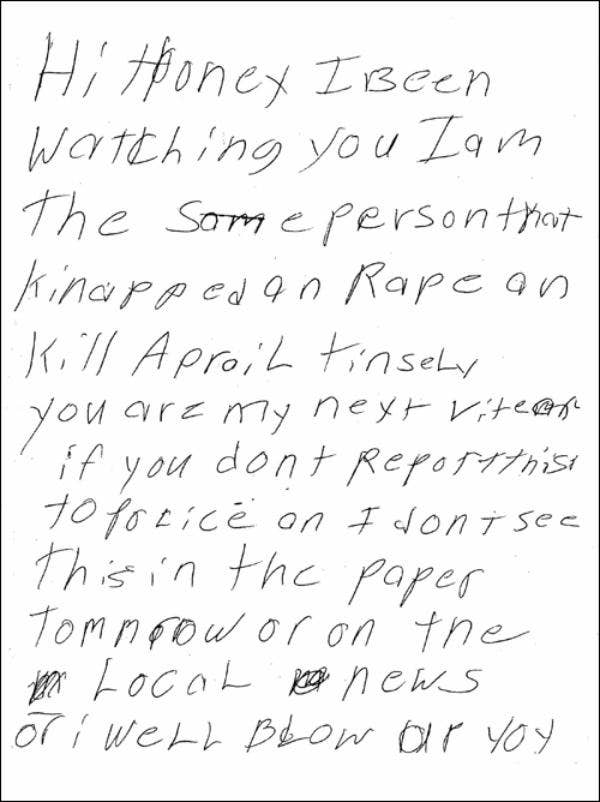 Hi Honey I Been
Watching you I am
The Same person that
kinapped an Rape an
Kill Aproil tinsely
you are my next
if you dont Report this
to police an I don't see
this in the paper
Tomnrow or on the
Local news
or i well Blow up yoy